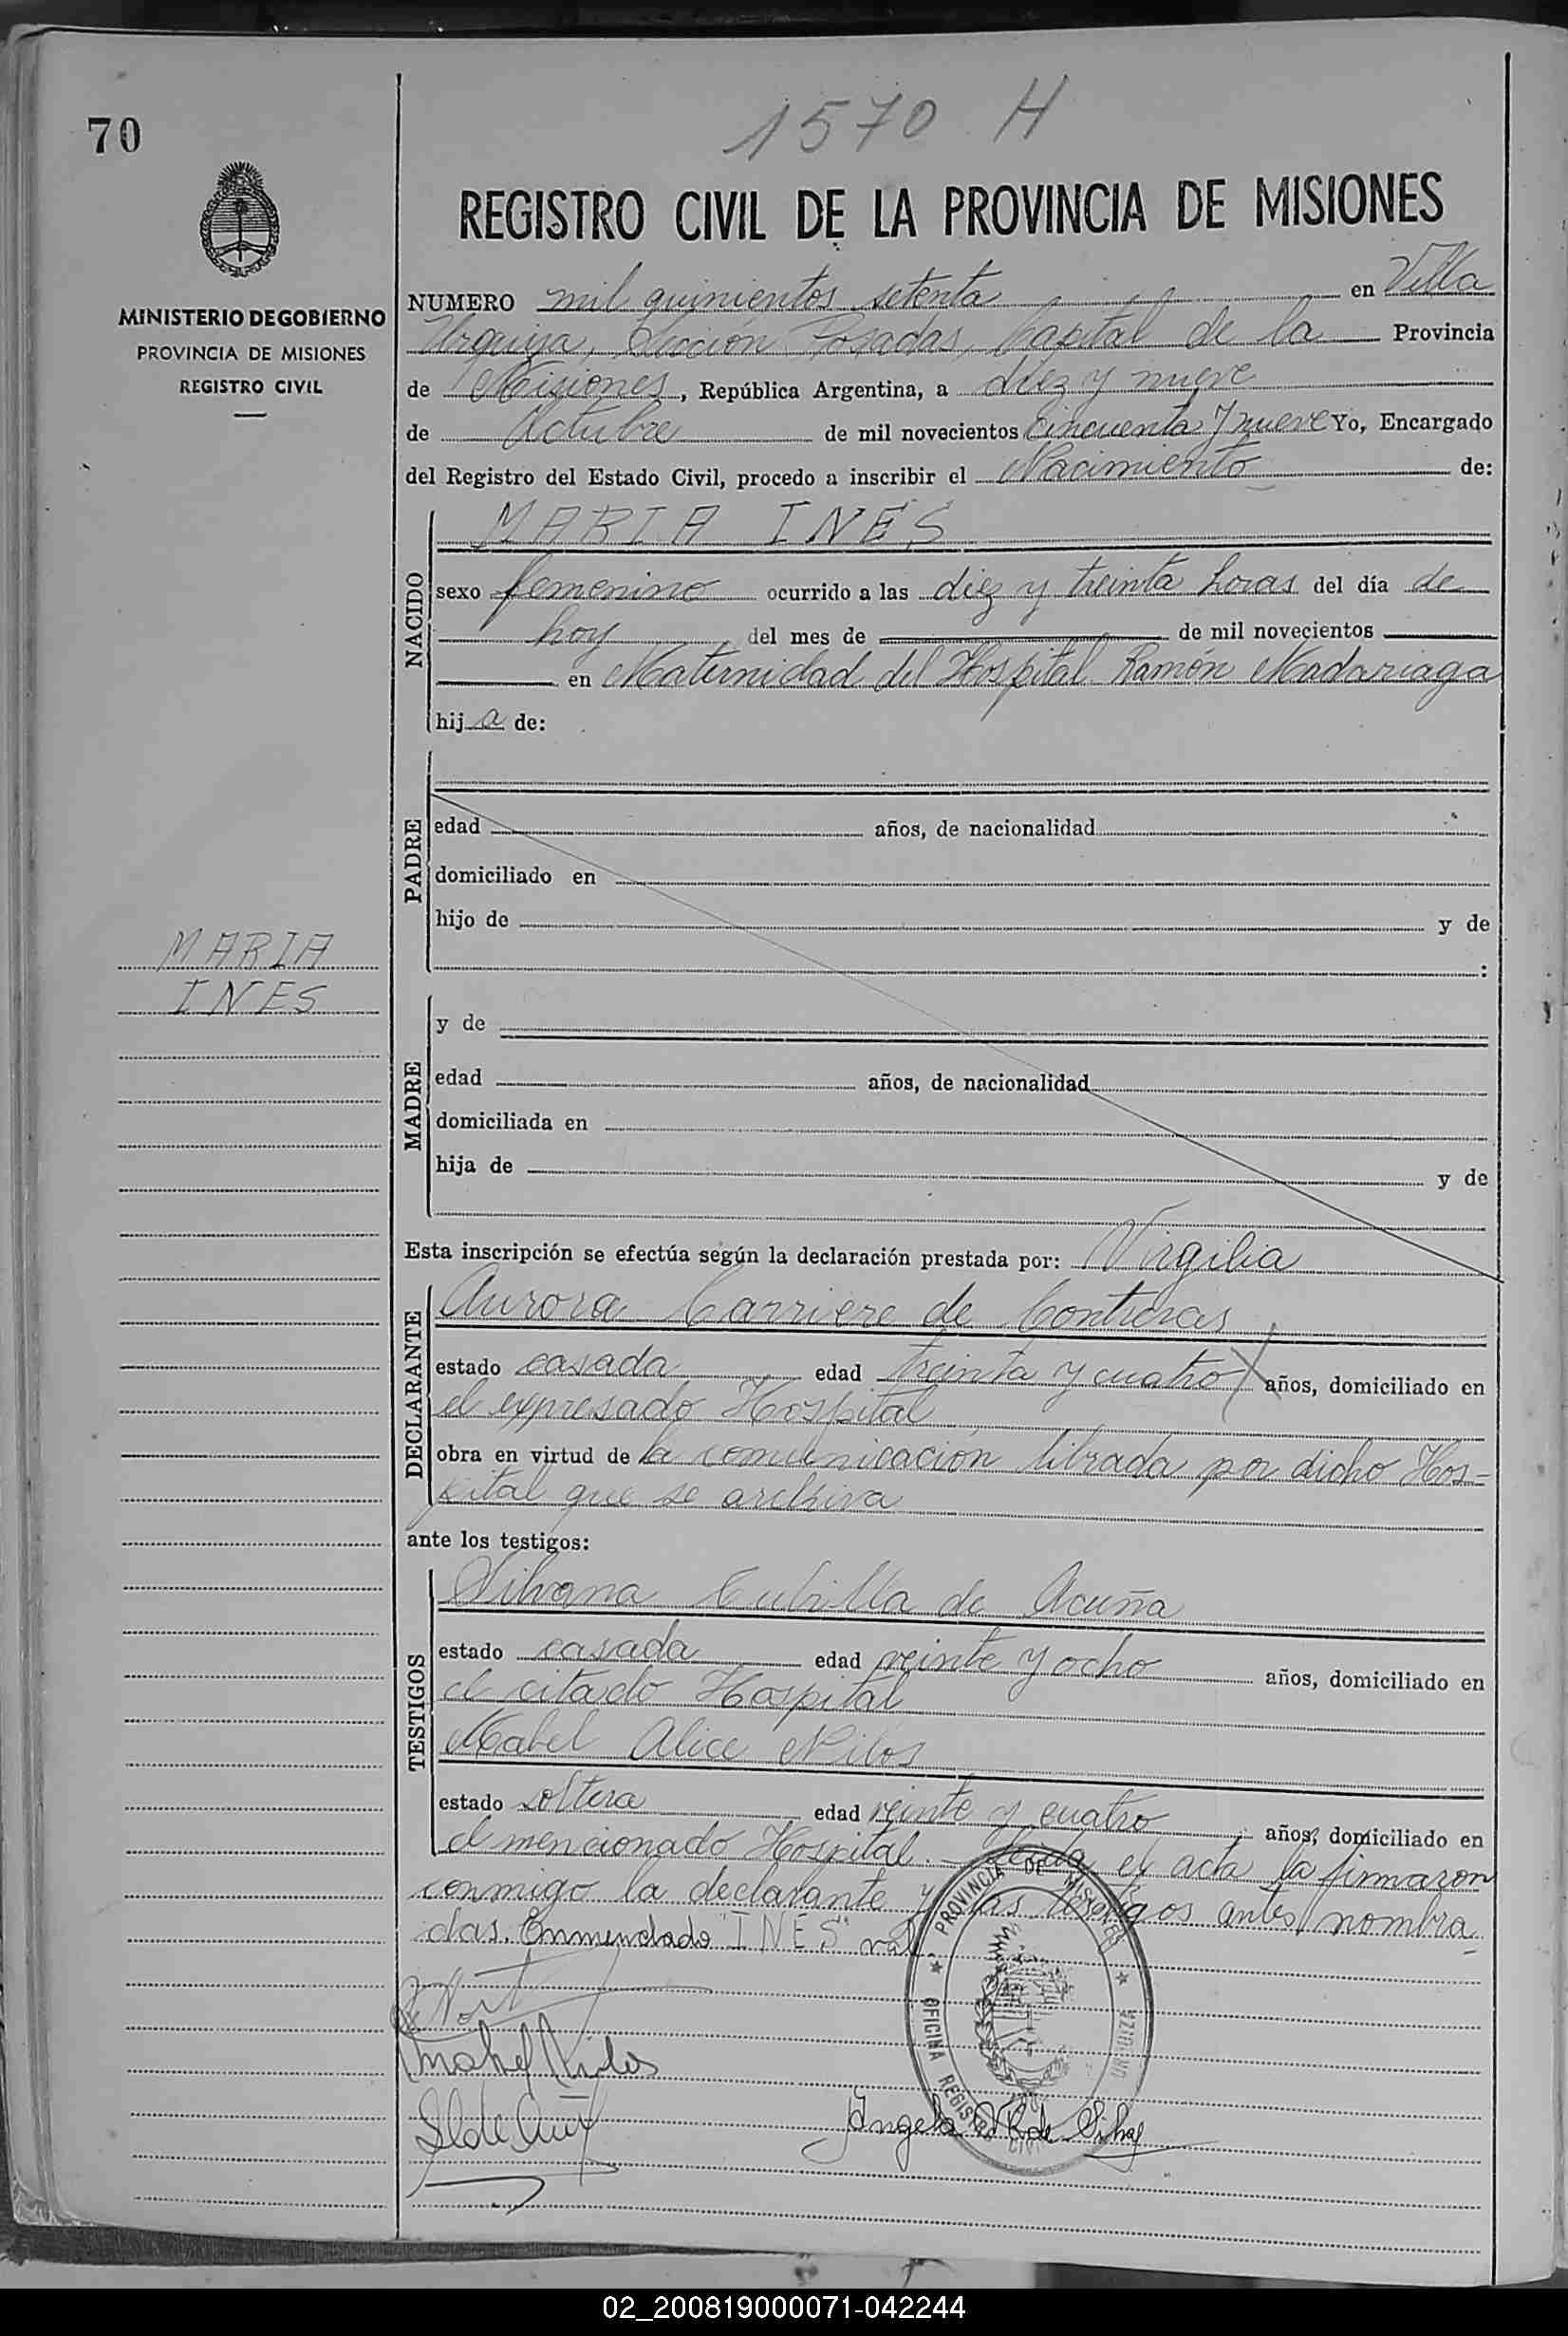 70
1570 H
REGISTRO CIVIL DE LA PROVINCIA DE MISIONES
MINISTERIO DE GOBIERNO
PROVINCIA DE MISIONES
REGISTRO CIVIL
NUMERO mil quinientos setenta en Villa
Urquiza, Sección Posadas, Capital de la Provincia
de Misiones, República Argentina, a diez y nueve
de Octubre de mil novecientos cincuenta y nueve Yo, Encargado
del Registro del Estado Civil, procedo a inscribir el Nacimiento de:
NACIDO
MARIA INÉS
sexo femenino ocurrido a las diez y treinta horas del día de
hoy del mes de de mil novecientos
en Maternidad del Hospital Ramón Madariaga
hija de:
PADRE
edad años, de nacionalidad
domiciliado en
hijo de y de
:
MARIA
INES
MADRE
y de
edad años, de nacionalidad
domiciliada en
hija de y de
Esta inscripción se efectúa según la declaración prestada por: Virgilia
DECLARANTE
Aurora Carriere de Contreras
estado casada edad treinta y cuatro años, domiciliado en
el expresado Hospital
obra en virtud de la comunicación librada por dicho Hos-
pital que se archiva
ante los testigos:
TESTIGOS
Silvana Cubilla de Acuña
estado casada edad veinte y ocho años, domiciliado en
el citado Hospital
Mabel Alice
estado soltera edad veinte y cuatro años, domiciliado en
el mencionado Hospital. Leída el acta la firmaron
conmigo la declarante y las testigos antes nombra
das. Enmendado "INÉS" vale.
PROVINCIA DE MISIONES
OFICINA REGISTRO CIVIL
Mabel
Angela de Silva
02_200819000071-042244